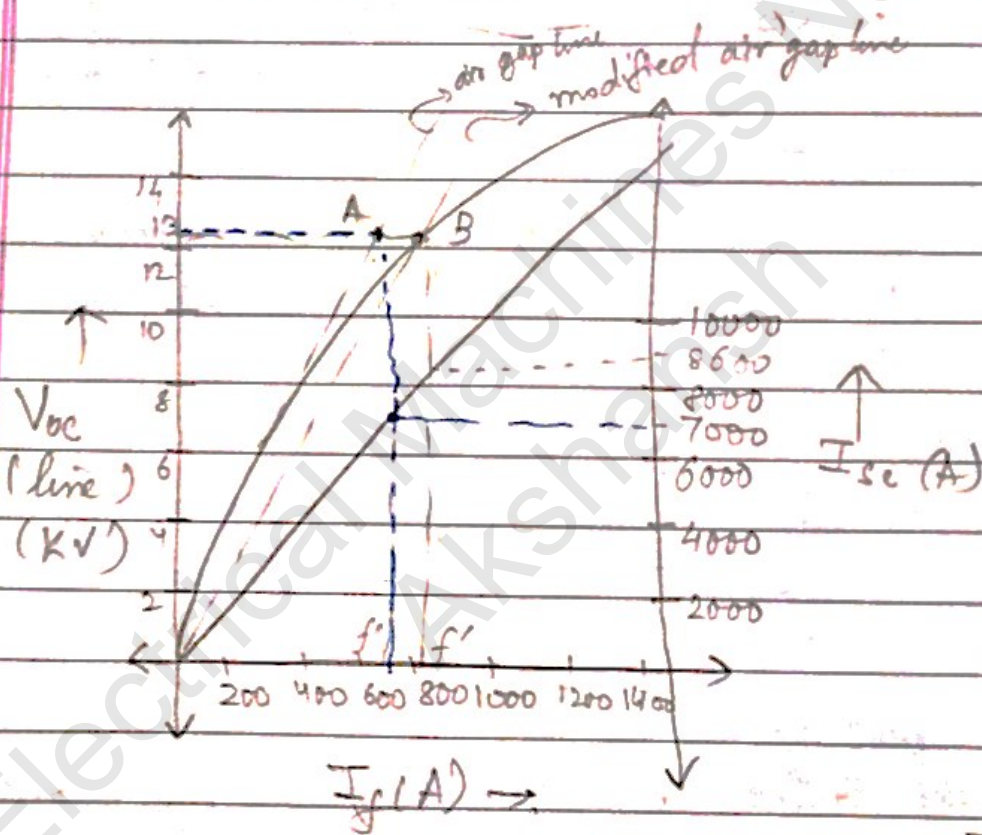 air gap line
modified air gap line
14
13
12
10
8
6
4
2
A
B
Voc
(line)
(KV)
10000
8600
8000
7000
6000
4000
2000
Isc (A)
f' f'
200 400 600 800 1000 1200 1400
If (A) →
Electrical Machines
Akshansh